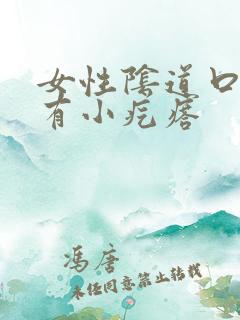 女性陰道口
有小疙瘩
馮唐
未经同意禁止转载